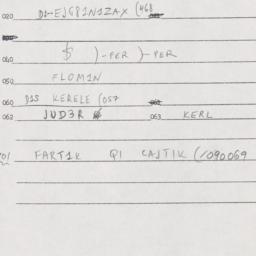 020 D1-EJG81N1ZAX (468
040 $ )-PER )-PER
050 FLOM1N
060 D1S KERELE (057
062 JUD3R 063 KERL
701 FART1K Q1 CAJT1K (/090069